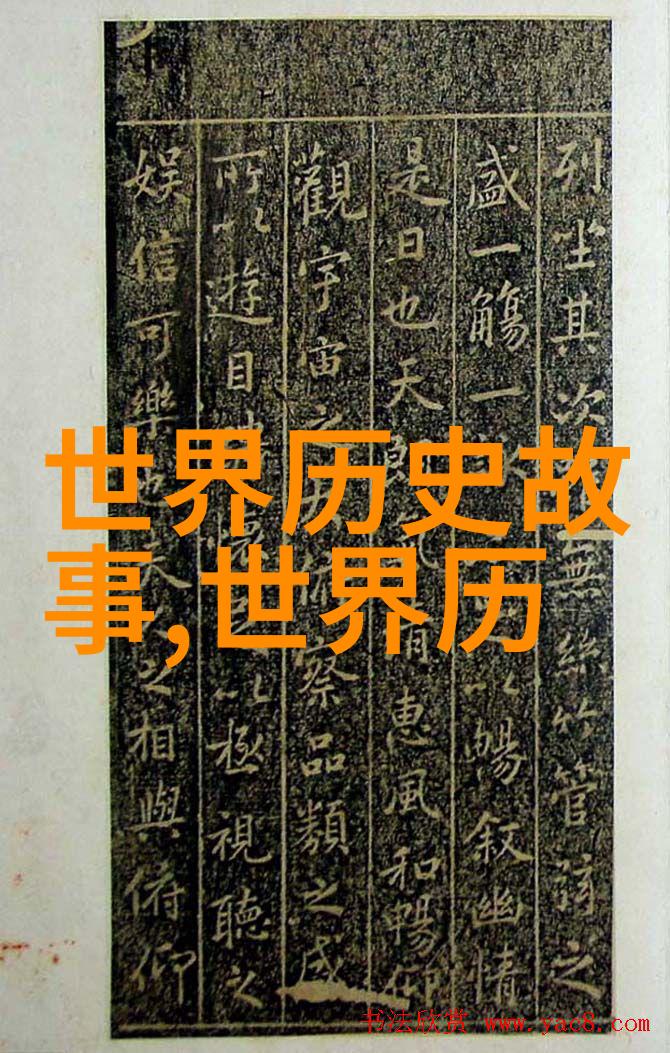 列坐其次無絲竹管弦之
盛一觴一以暢叙幽情
是日也天惠風和暢仰
觀宇宙之察品類之盛
所以遊目以極視聽之
娱信可樂夫之相與俯仰
世界历史故
事,世界历
书法欣赏 www.yac8.com